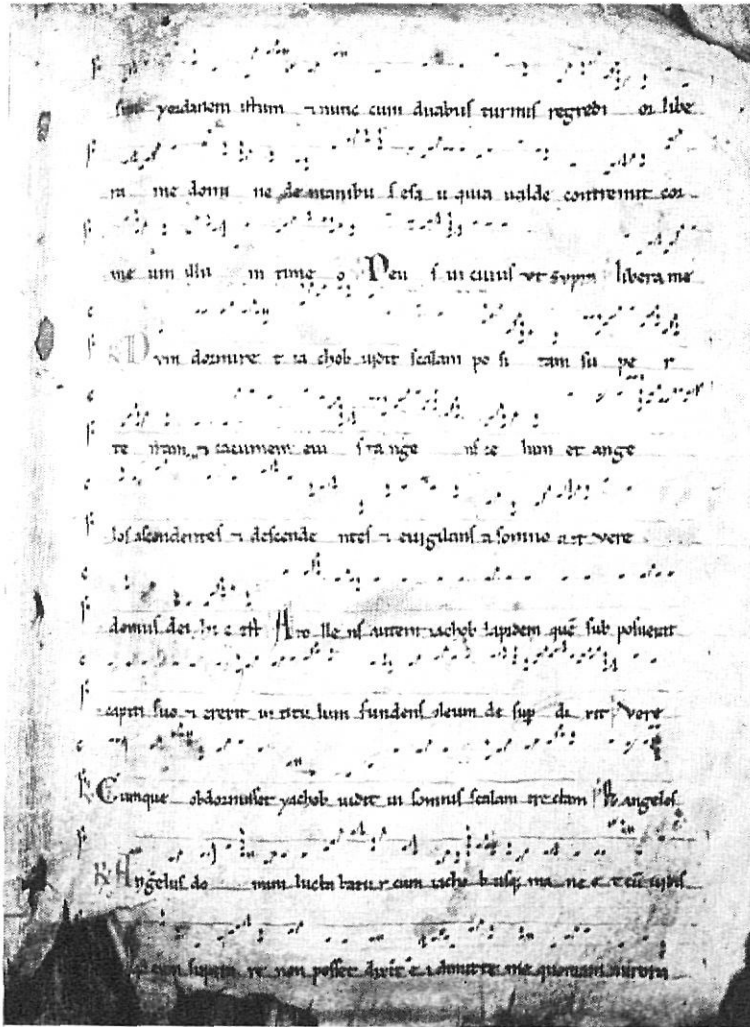 yordanem istum ⁊ nunc cum duabus turmis regredi or libe
ra me domi ne de manibu s esa u quia ualde contremit cor
me um illu m time o Deu s in cuius libera me
Dum dormire t ia chob uidit scalam po si tam su pe r
te rram ⁊ cacumen eiu s tange ns ce lum et ange
los ascendentes ⁊ descende ntes ⁊ euigilans a somno a it vere
domus dei autem iachob lapidem quē sub posuerat
capiti suo ⁊ erexit in titu lum fundens oleum de sup di xit Vere
Cumque obdormisset yachob uidit in somnis scalam erectam angelos
Angelus do mini lucta batur cum iacho b usq; ma ne
non posset dixit e i dimitte me quoniam aurora